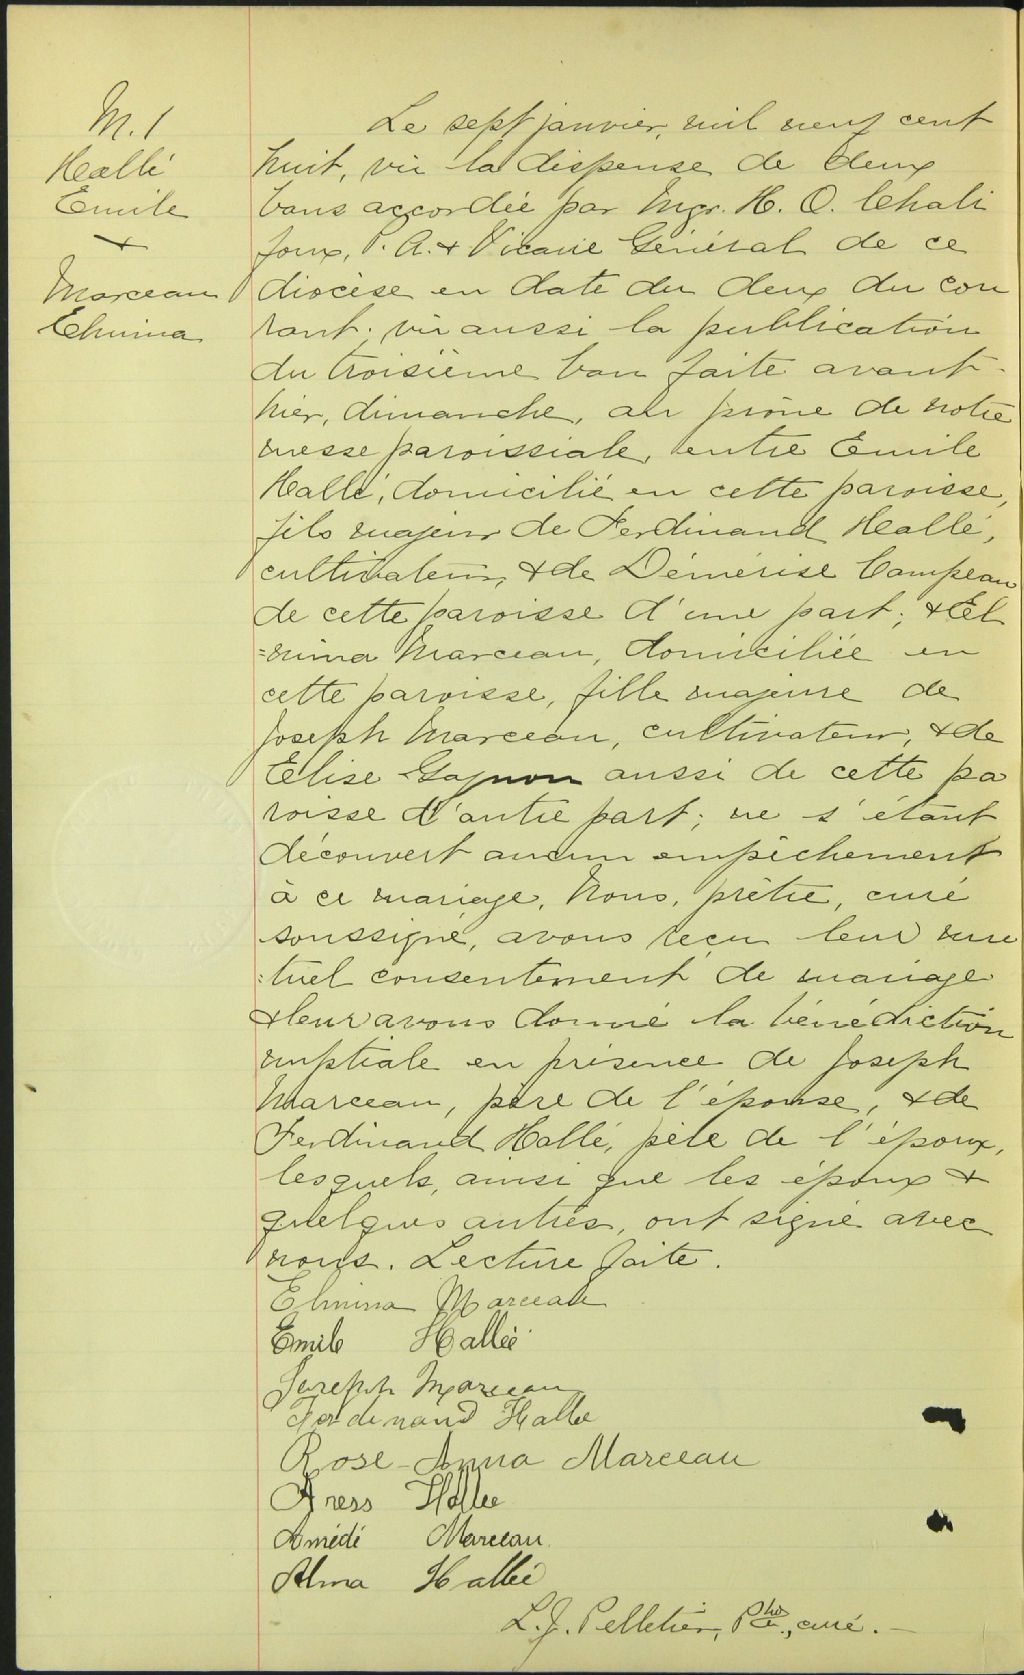 M. 1
Hallé
Emile
+
Marceau
Elmina
Le sept janvier, mil neuf cent
huit, vu la dispense de deux
bans accordée par Mgr. H. O. Chali
foux, P. A. & Vicaire Général de ce
diocèse en date du deux du cou
rant; vu aussi la publication
du troisième ban faite avant-
hier, dimanche, au prône de notre
messe paroissiale, entre Emile
Hallé, domicilié en cette paroisse,
fils majeur de Ferdinand Hallé,
cultivateur, & de Démérise Campeau
de cette paroisse d'une part; & El
=mina Marceau, domiciliée en
cette paroisse, fille majeure de
Joseph Marceau, cultivateur, & de
Elise Gagnon aussi de cette pa
roisse d'autre part; ne s'étant
découvert aucun empêchement
à ce mariage, Nous, prêtre, curé
soussigné, avons reçu leur mu
=tuel consentement de mariage
& leur avons donné la bénédiction
nuptiale en présence de Joseph
Marceau, père de l'épouse, & de
Ferdinand Hallé, père de l'époux,
lesquels, ainsi que les époux &
quelques autres, ont signé avec
nous. Lecture faite.
Elmina Marceau
Emile Hallée
Joseph Marceau
Ferdinand Halle
Rose-Anna Marceau
Hallee
Amédé Marceau
Alma Hallée
L. J. Pelletier, Ptre, curé.